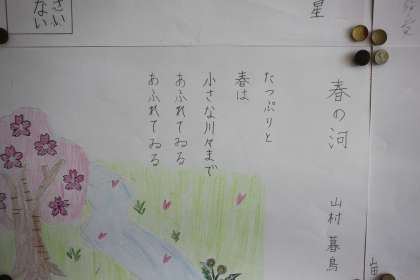 春の河
山村 暮鳥
たっぷりと
春は
小さな川々まで
あふれてゐる
あふれてゐる
星
さい
ない